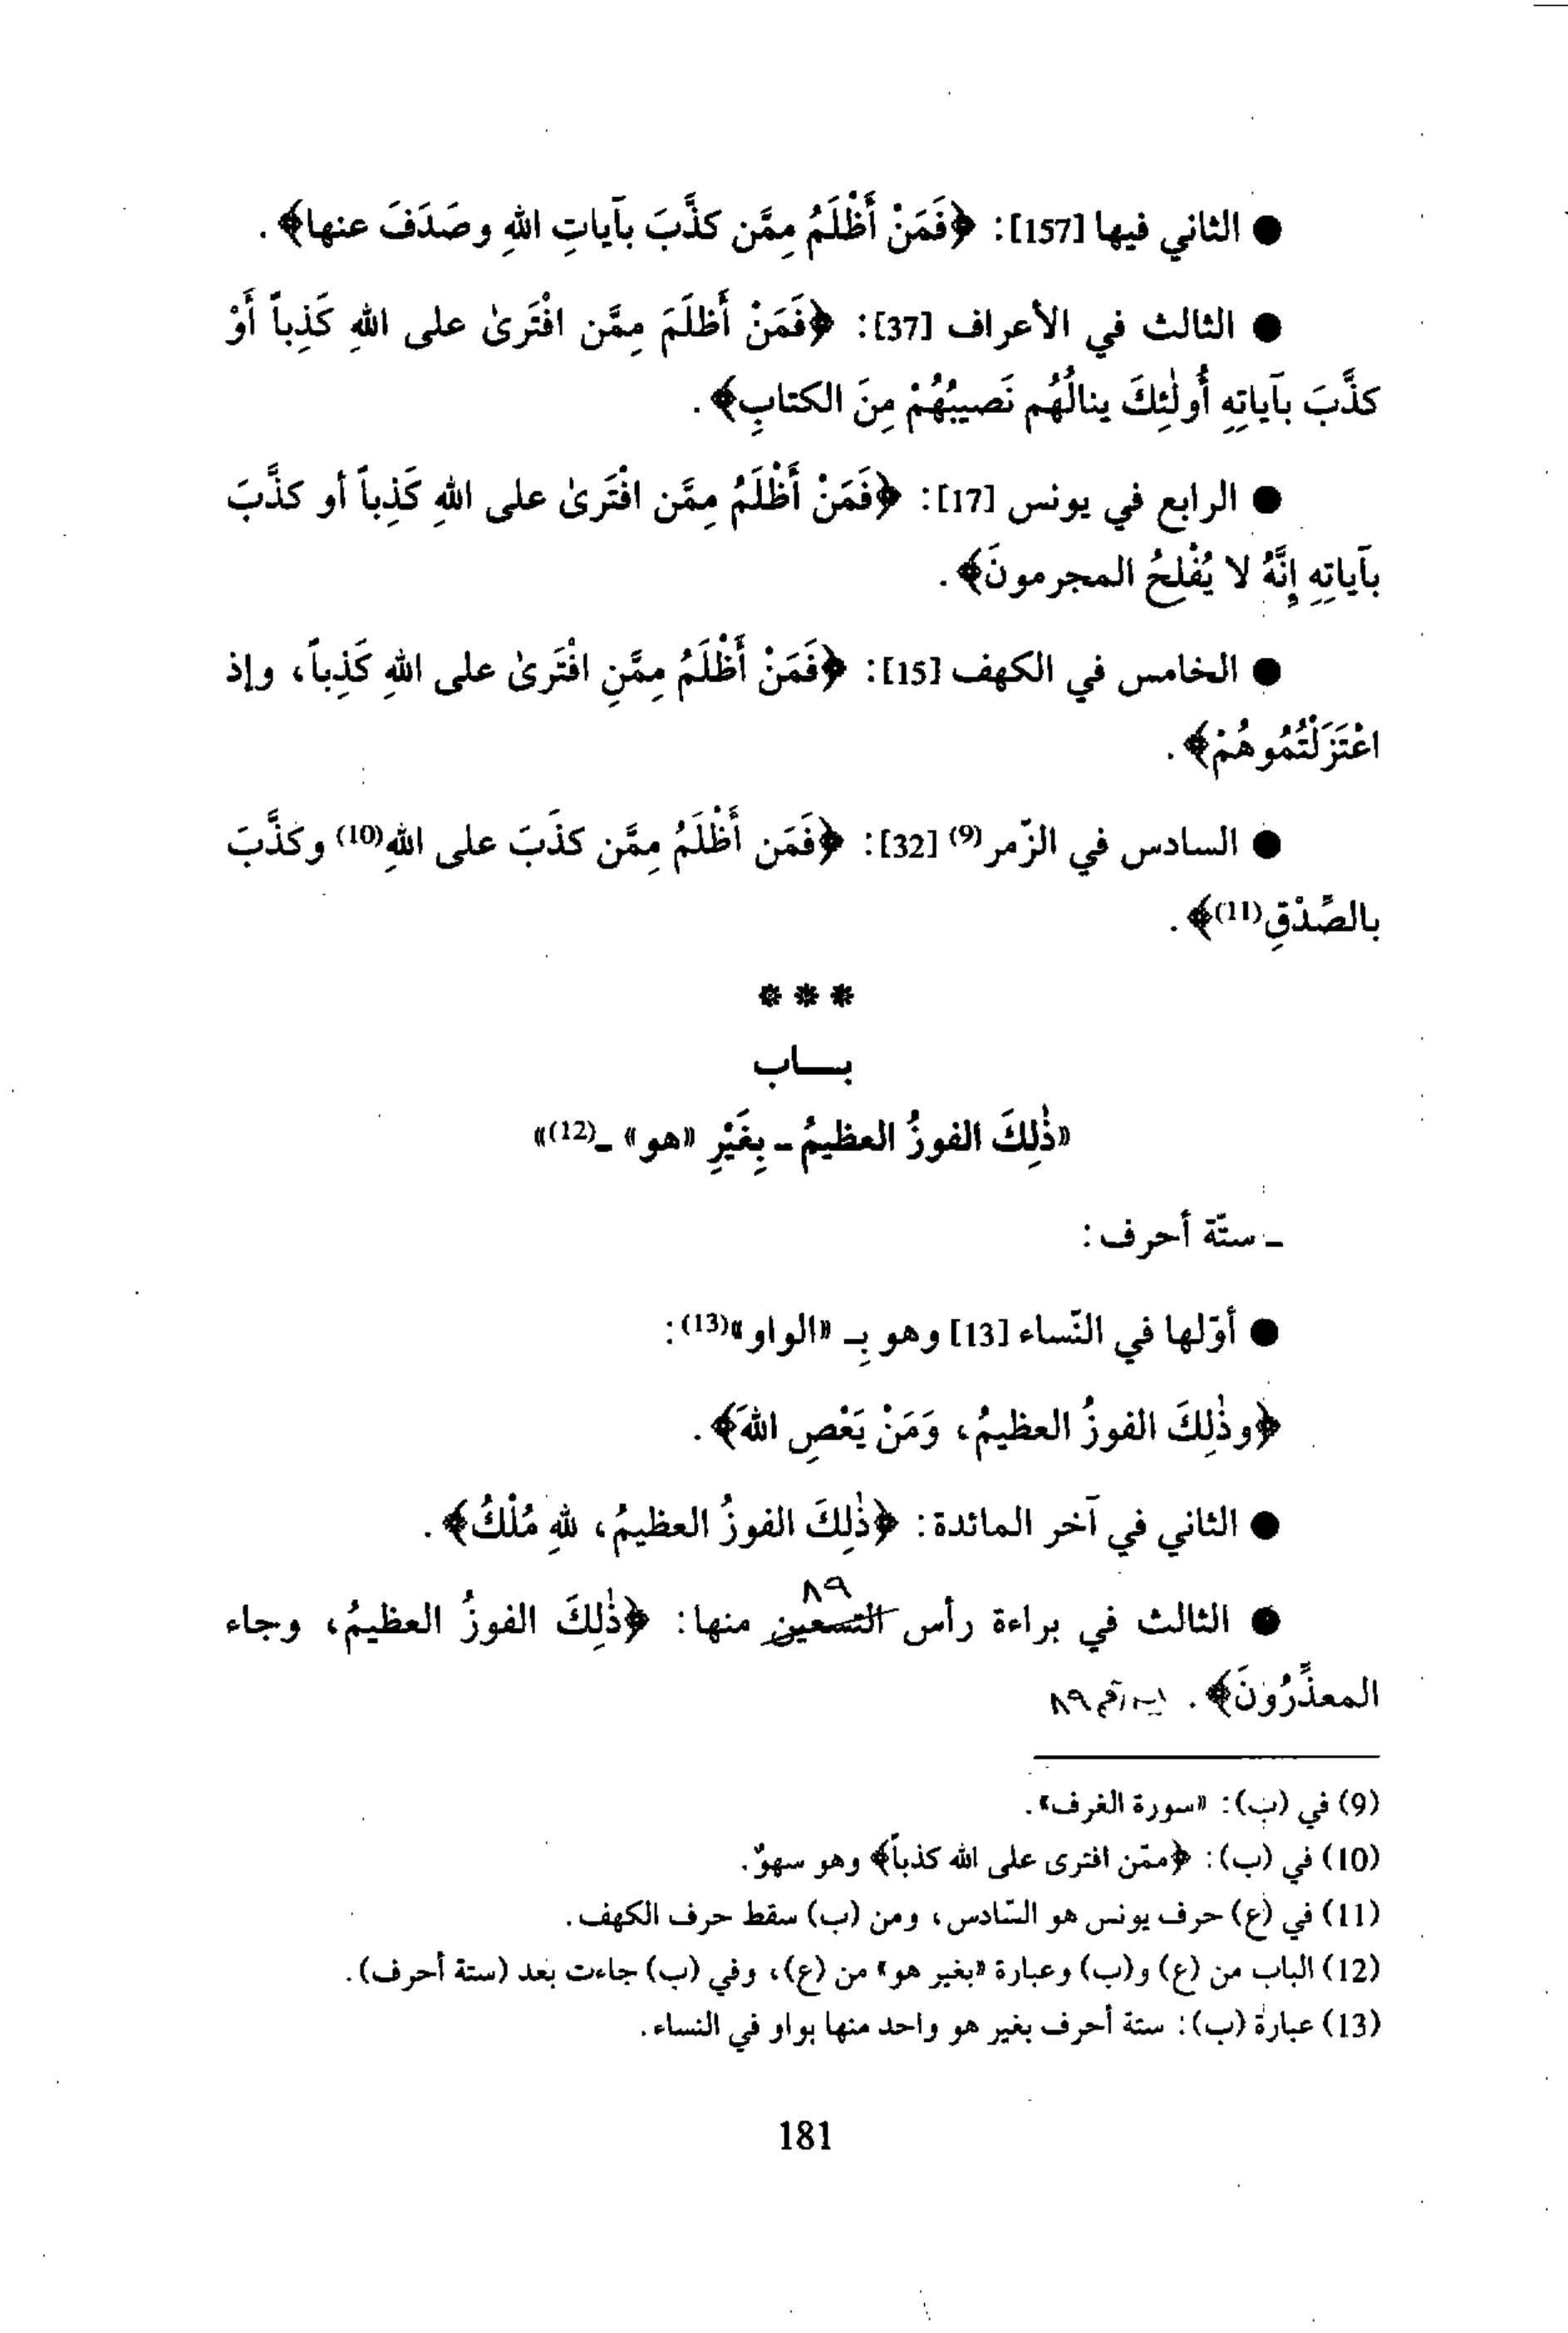 ● الثاني فيها [157]: ﴿فَمَنْ أَظْلَمُ مِمَّن كذَّبَ بآياتِ اللهِ وصَدَفَ عنها﴾.
● الثالث في الأعراف [37]: ﴿فَمَنْ أَظلَمَ مِمَّن افْتَرىٰ على اللهِ كَذِباً أَوْ
كذَّبَ بآياتِهِ أُولٰئِكَ ينالُهُم نَصيبُهُمْ مِنَ الكتابِ﴾.
● الرابع في يونس [17]: ﴿فَمَنْ أَظْلَمُ مِمَّن افْتَرىٰ على اللهِ كَذِباً أو كذَّبَ
بآياتِهِ إِنَّهُ لا يُفْلِحُ المجرمونَ﴾.
● الخامس في الكهف [15]: ﴿فَمَنْ أَظْلَمُ مِمَّنِ افْتَرىٰ على اللهِ كَذِباً، وإذ
اعْتَزَلْتُمُوهُمْ﴾.
● السادس في الزّمر(9) [32]: ﴿فَمَن أَظْلَمُ مِمَّن كذَبَ على اللهِ(10) وكذَّبَ
بالصِّدْقِ(11)﴾.
* * *
بـــاب
«ذٰلِكَ الفوزُ العظيمُ ـ بِغَيْرِ «هو» ـ(12)»
ـ ستّة أحرف:
● أوّلها في النّساء [13] وهو بِـ «الواو»(13):
﴿وذٰلِكَ الفوزُ العظيمُ، وَمَنْ يَعْصِ اللهَ﴾.
● الثاني في آخر المائدة: ﴿ذٰلِكَ الفوزُ العظيمُ، للهِ مُلْكُ﴾.
٨٩
● الثالث في براءة رأس التسعين منها: ﴿ذٰلِكَ الفوزُ العظيمُ، وجاء
المعذِّرُونَ﴾. رقم ٨٩
(9) في (ب): «سورة الغرف».
(10) في (ب): ﴿ممّن افترى على الله كذباً﴾ وهو سهوٌ.
(11) في (ع) حرف يونس هو السّادس، ومن (ب) سقط حرف الكهف.
(12) الباب من (ع) و(ب) وعبارة «بغير هو» من (ع)، وفي (ب) جاءت بعد (ستة أحرف).
(13) عبارة (ب): ستة أحرف بغير هو واحد منها بواو في النساء.
181